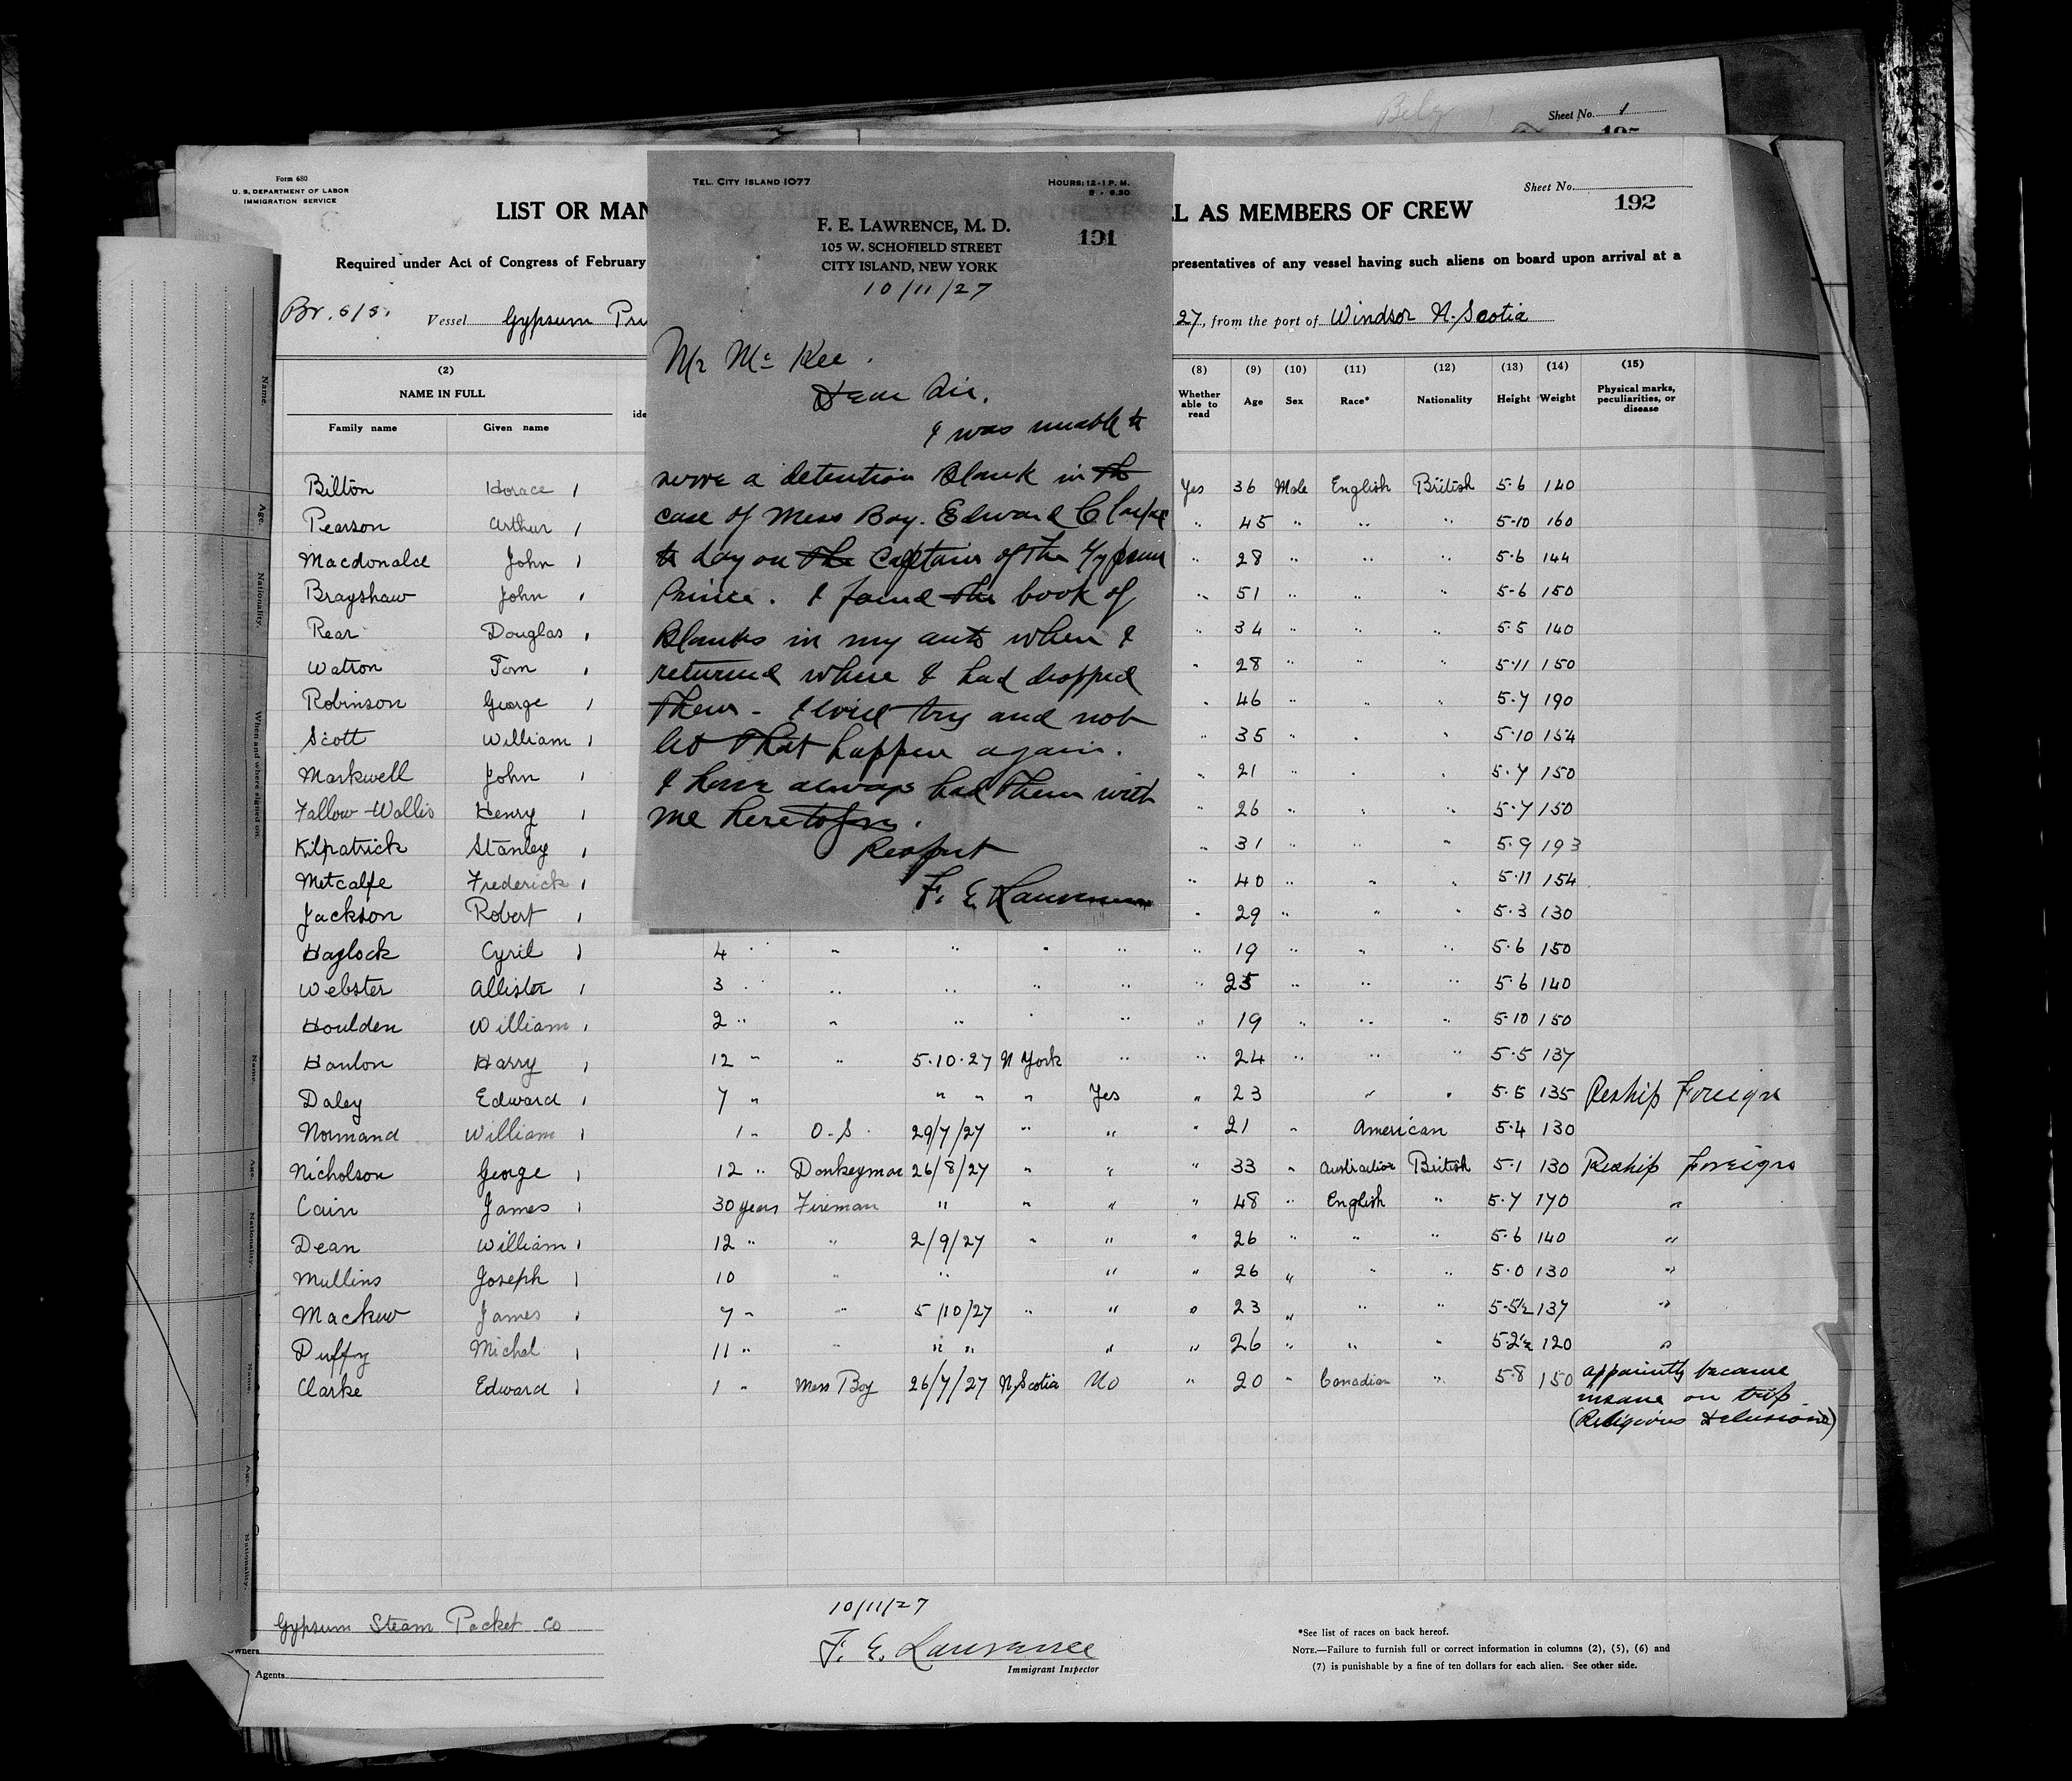 Sheet No. 1
Form 680
U. S. DEPARTMENT OF LABOR
IMMIGRATION SERVICE
Sheet No.
192
LIST OR MAN
L AS MEMBERS OF CREW
Required under Act of Congress of February
presentatives of any vessel having such aliens on board upon arrival at a
Vessel Gypsum Pri
27, from the port of Windsor N. Scotia
TEL. CITY ISLAND 1077
HOURS: 12-1 P. M.
F. E. LAWRENCE, M. D.
191
105 W. SCHOFIELD STREET
CITY ISLAND, NEW YORK
10/11/27
Mr Mc Kee.
Dear Sir,
I was unable to
serve a detention Blank in the
case of Mess Boy. Edward Clarke
to day on the Captain of the Gypsum
Prince. I found the book of
Blanks in my auto when I
returned where I had dropped
them - I will try and not
let that happen again.
I have always had them with
me heretofore.
Respect
F. E. Lawrence
(2) (8) (9) (10) (11) (12) (13) (14) (15)
NAME IN FULL
Family name Given name
Whether able to read Age Sex Race* Nationality Height Weight Physical marks, peculiarities, or disease
Bilton Horace 1 Yes 36 Male English British 5·6 140
Pearson Arthur 1 " 45 " " " 5-10 160
Macdonald John 1 " 28 " " " 5·6 144
Brayshaw John 1 " 51 " " " 5-6 150
Rear Douglas 1 " 34 " " " 5·5 140
Watson Tom 1 " 28 " " " 5·11 150
Robinson George 1 " 46 " " " 5·7 190
Scott William 1 " 35 " " " 5·10 154
Markwell John 1 " 21 " " " 5·7 150
Fallow-Wallis Henry 1 " 26 " " " 5·7 150
Kilpatrick Stanley 1 " 31 " " " 5·9 193
Metcalfe Frederick 1 " 40 " " " 5·11 154
Jackson Robert 1 " 29 " " " 5·3 130
Haylock Cyril 1 4 " " " " " " 19 " " " 5·6 150
Webster Allister 1 3 " " " " " " 25 " " " 5·6 140
Houlden William 1 2 " " " " " " 19 " " " 5·10 150
Hanlon Harry 1 12 " " 5·10·27 N York " " 24 " " " 5·5 137
Daley Edward 1 7 " " " " Yes " 23 " " 5·5 135 Reship Foreign
Normand William 1 1 " O.S. 29/7/27 " " " 21 " American 5·4 130
Nicholson George 1 12 " Donkeyman 26/8/27 " " " 33 " Australian British 5·1 130 Reship Foreign
Cain James 1 30 years Fireman " " " " 48 " English " 5·7 170 "
Dean William 1 12 " " 2/9/27 " " " 26 " " " 5·6 140 "
Mullins Joseph 1 10 " " " " 26 " " " 5·0 130 "
Mackew James 1 7 " " 5/10/27 " " " 23 " " " 5-5½ 137 "
Duffy Michel 1 11 " " " " " " 26 " " " 5·2½ 120 "
Clarke Edward 1 1 " Mess Boy 26/7/27 N. Scotia No " 20 " Canadian " 5·8 150 apparently became
insane on trip
(Religious delusions)
Gypsum Steam Packet Co
wners
Agents
10/11/27
F. E. Lawrence
Immigrant Inspector
*See list of races on back hereof.
NOTE.—Failure to furnish full or correct information in columns (2), (5), (6) and
(7) is punishable by a fine of ten dollars for each alien. See other side.